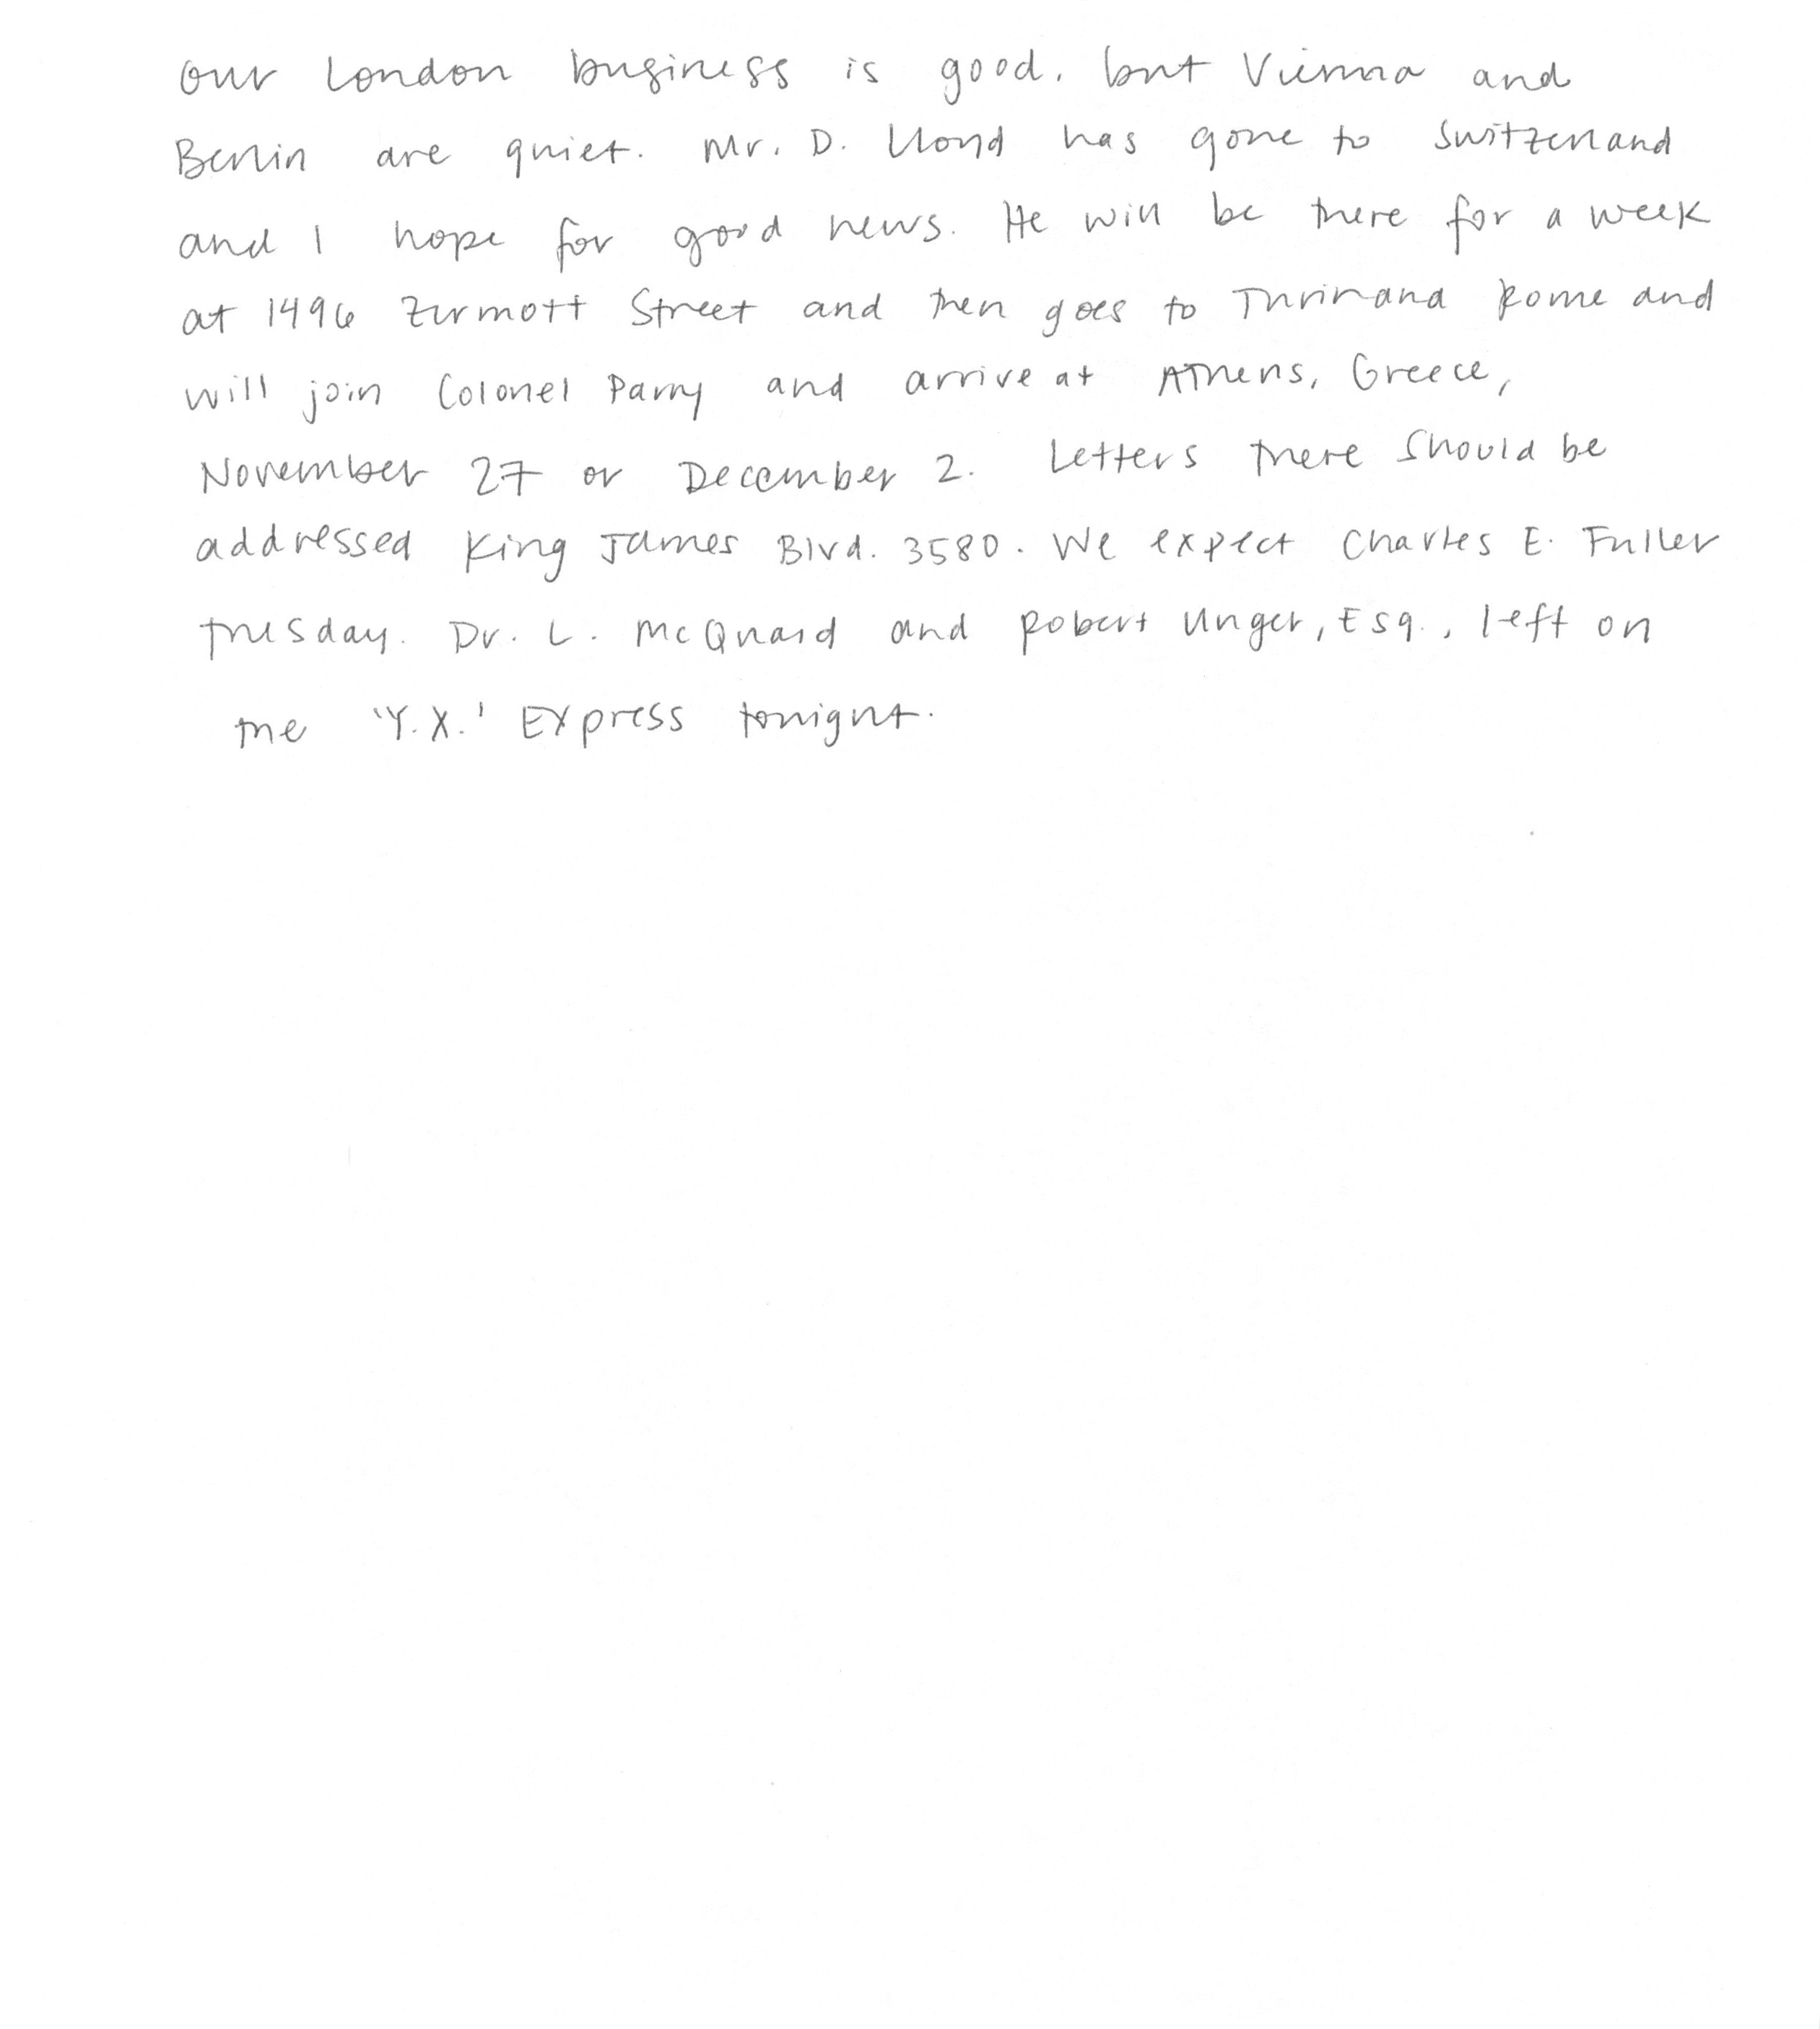 Our London business is good, but Vienna and
Berlin are quiet. Mr. D. Lloyd has gone to Switzerland
and I hope for good news. He will be there for a week
at 1496 Zermott Street and then goes to Turin and Rome and
will join Colonel Parry and arrive at Athens, Greece,
November 27 or December 2. Letters there should be
addressed King James Blvd. 3580. We expect Charles E. Fuller
Tuesday. Dr. L. McQuaid and Robert Unger, Esq., left on
the 'Y.X.' Express tonight.